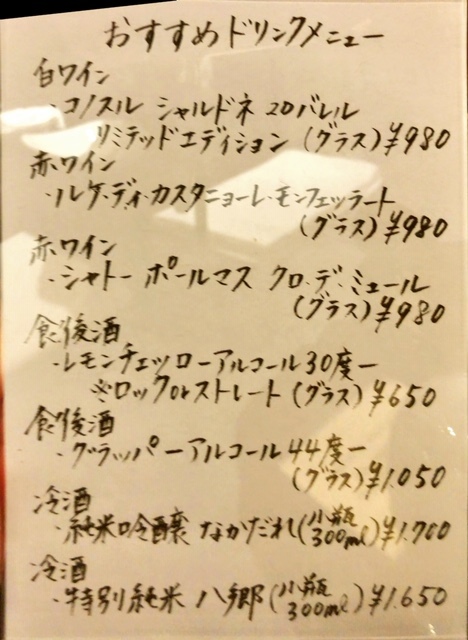 おすすめドリンクメニュー
白ワイン
・コノスル シャルドネ 20バレル
リミテッドエディション (グラス) ¥980
赤ワイン
・ルケ・ディ・カスタニョーレ・モンフェッラート
(グラス) ¥980
赤ワイン
・シャトー ポールマス クロ・デ・ミュール
(グラス) ¥980
食後酒
・レモンチェッローアルコール30度ー
※ロックorストレート (グラス) ¥650
食後酒
・グラッパーアルコール44度ー
(グラス) ¥1.050
冷酒
・純米吟醸 なかだれ(小瓶 300ml) ¥1.700
冷酒
・特別純米 八郷(小瓶 300ml) ¥1.650